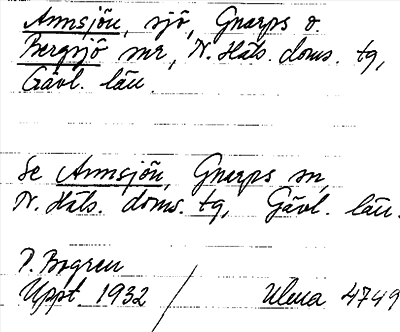 Annsjön, sjö, Gnarps o.
Bergsjö snr, N. Häls. doms. tg,
Gävl. län.
Se Annsjön, Gnarps sn,
N. Häls. doms. tg, Gävl. län.
D. Bogren
Uppt. 1932 / Ulua 4749